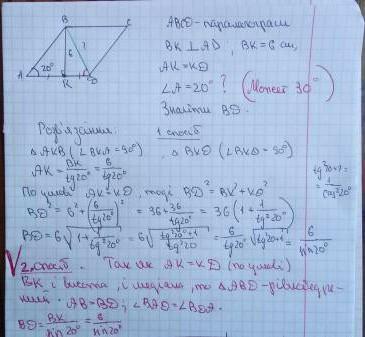 B C
6 ?
A 20° K D
ABCD - паралелограм
BK ⊥ AD, BK = 6 см,
AK = KD
∠A = 20° ? (Может 30°)
Знайти BD.
Розв'язання: 1 спосіб
△ AKB (∠BKA = 90°) , △ BKD (∠BKD = 90°)
AK = BK/tg20° = 6/tg20°
tg²20+1 = 1/cos²20°
По умові AK = KD, тоді BD² = BK² + KD²
BD² = 6² + (6/tg20°)² = 36 + 36/tg²20° = 36(1 + 1/tg²20°)
BD = 6√(1 + 1/tg²20°) = 6√((tg²20°+1)/tg²20°) = 6/tg20° √(tg²20°+1) = 6/sin20°
2 спосіб. Так як AK = KD (по умові)
BK і висота, і медіана, то △ABD - рівнобедре-
ний. AB = BD; ∠BAD = ∠BDA.
BD = BK/sin20° = 6/sin20°